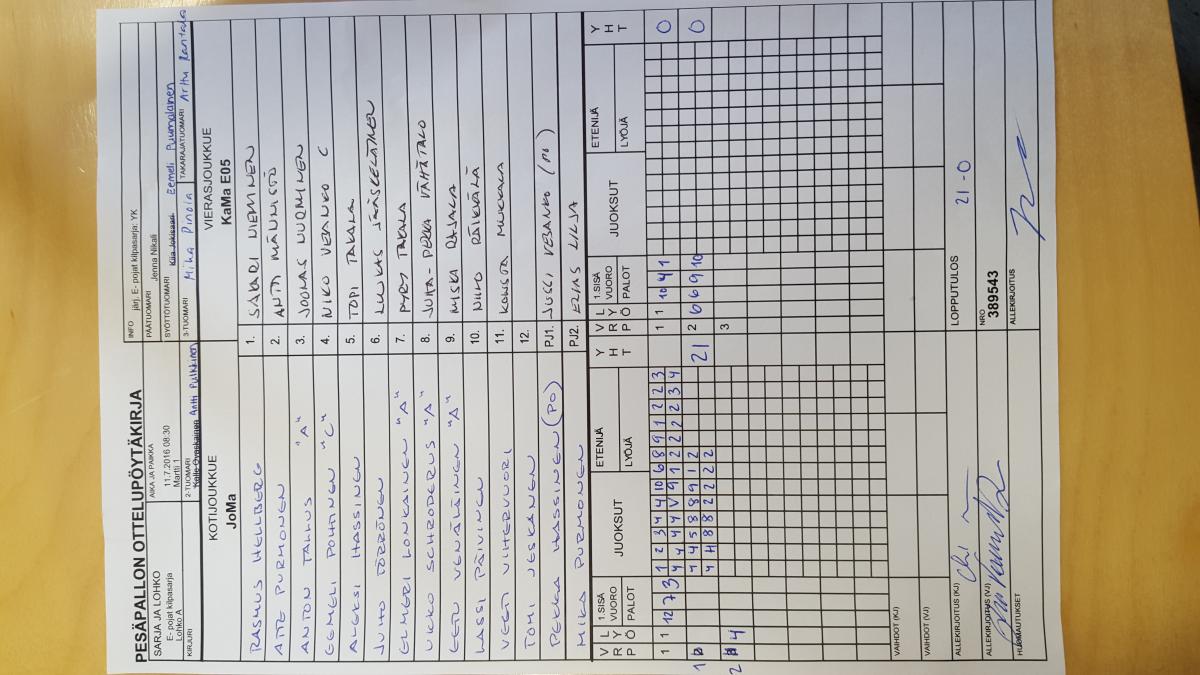 PESÄPALLON OTTELUPÖYTÄKIRJA
SARJA JA LOHKO
E- pojat kilpasarja
Lohko A
AIKA JA PAIKKA
11.7.2016 08:30
Martti 1
INFO järj. E- pojat kilpasarja: YK
PÄÄTUOMARI Jenna Nikali
SYÖTTÖTUOMARI Eemeli Puumalainen
KIRJURI
2-TUOMARI Antti Pulkkinen
3-TUOMARI Mika Pinola
TAKARAJATUOMARI Arttu Rantala
KOTIJOUKKUE
JoMa
VIERASJOUKKUE
KaMa E05
RASMUS HELLBERG 1. SAKARI NIEMINEN
ATTE PURMONEN 2. ANTTI MÄNNISTÖ
ANTON TALLUS "A" 3. JOONAS NURMINEN
EEMELI POHTINEN "C" 4. NIKO VEBANKO C
ALEKSI HASSINEN 5. TOPI TAKALA
JUHO TÖRRÖNEN 6. LUUKAS JÄÄSKELÄINEN
ELMERI LONKAINEN "A" 7. PYRY TAKALA
UKKO SCHRODERUS "A" 8. JUHA-PEKKA VÄHÄTALO
EETU VENÄLÄINEN "A" 9. MISKA RAJALA
LASSI PÄIVINEN 10. NIILO RÄIKKÄLÄ
VEETI VIHERVUORI 11. KONSTA MUKKALA
TOMI JESKANEN 12.
PEKKA HASSINEN (PO) PJ1. JUSSI VEBANKO (PO)
MIKA PURMONEN PJ2. ELIAS LILJA
V L R Y P Ö
1.SISÄ VUORO PALOT
JUOKSUT
ETENIJÄ
LYÖJÄ
Y H T
V L R Y P Ö
1.SISÄ VUORO PALOT
JUOKSUT
ETENIJÄ
LYÖJÄ
Y H T
1 1 12 7 3 1 2 3 4 4 10 6 8 9 1 2 2 3
4 4 4 4 V 9 1 2 2 2 2 3 4
1 1 10 4 1 0
1 4 4 5 8 8 9 1 2
4 4 8 8 2 2 2 2
21
2 6 6 9 10 0
2 4
3
VAIHDOT (KJ)
VAIHDOT (VJ)
ALLEKIRJOITUS (KJ)
LOPPUTULOS 21-0
ALLEKIRJOITUS (VJ)
NRO
389543
HUOMAUTUKSET
ALLEKIRJOITUS